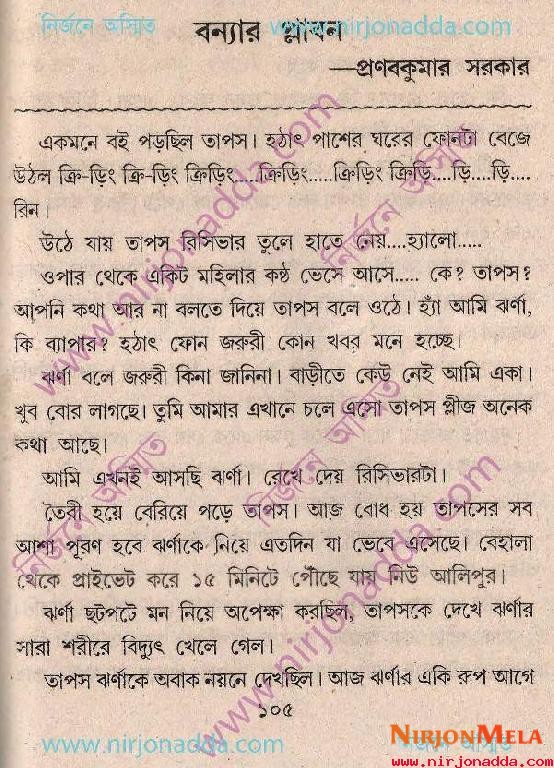 নির্জনে অস্মিত www.nirjonadda.com
বন্যার প্লাবন
—প্রণবকুমার সরকার
একমনে বই পড়ছিল তাপস। হঠাৎ পাশের ঘরের ফোনটা বেজে
উঠল ক্রি-ড়িং ক্রি-ড়িং ক্রিড়িং....ক্রিড়িং.....ক্রিড়িং ক্রিড়ি....ড়ি....ড়ি....
রিন।
উঠে যায় তাপস রিসিভার তুলে হাতে নেয়....হ্যালো.....
ওপার থেকে একটি মহিলার কন্ঠ ভেসে আসে..... কে? তাপস?
আপনি কথা আর না বলতে দিয়ে তাপস বলে ওঠে। হ্যাঁ আমি ঝর্ণা,
কি ব্যাপার? হঠাৎ ফোন জরুরী কোন খবর মনে হচ্ছে।
ঝর্ণা বলে জরুরী কিনা জানিনা। বাড়ীতে কেউ নেই আমি একা।
খুব বোর লাগছে। তুমি আমার এখানে চলে এসো তাপস প্লীজ অনেক
কথা আছে।
আমি এখনই আসছি ঝর্ণা। রেখে দেয় রিসিভারটা।
তৈরী হয়ে বেরিয়ে পড়ে তাপস। আজ বোধ হয় তাপসের সব
আশা পূরণ হবে ঝর্ণাকে নিয়ে এতদিন যা ভেবে এসেছে। বেহালা
থেকে প্রাইভেট করে ১৫ মিনিটে পৌঁছে যায় নিউ আলিপুর।
ঝর্ণা ছটপটে মন নিয়ে অপেক্ষা করছিল, তাপসকে দেখে ঝর্ণার
সারা শরীরে বিদ্যুৎ খেলে গেল।
তাপস ঝর্ণাকে অবাক নয়নে দেখছিল। আজ ঝর্ণার একি রুপ আগে
১০৫
www.nirjonadda.com নির্জনে অস্মিত
NirjonMela
www.nirjonadda.com